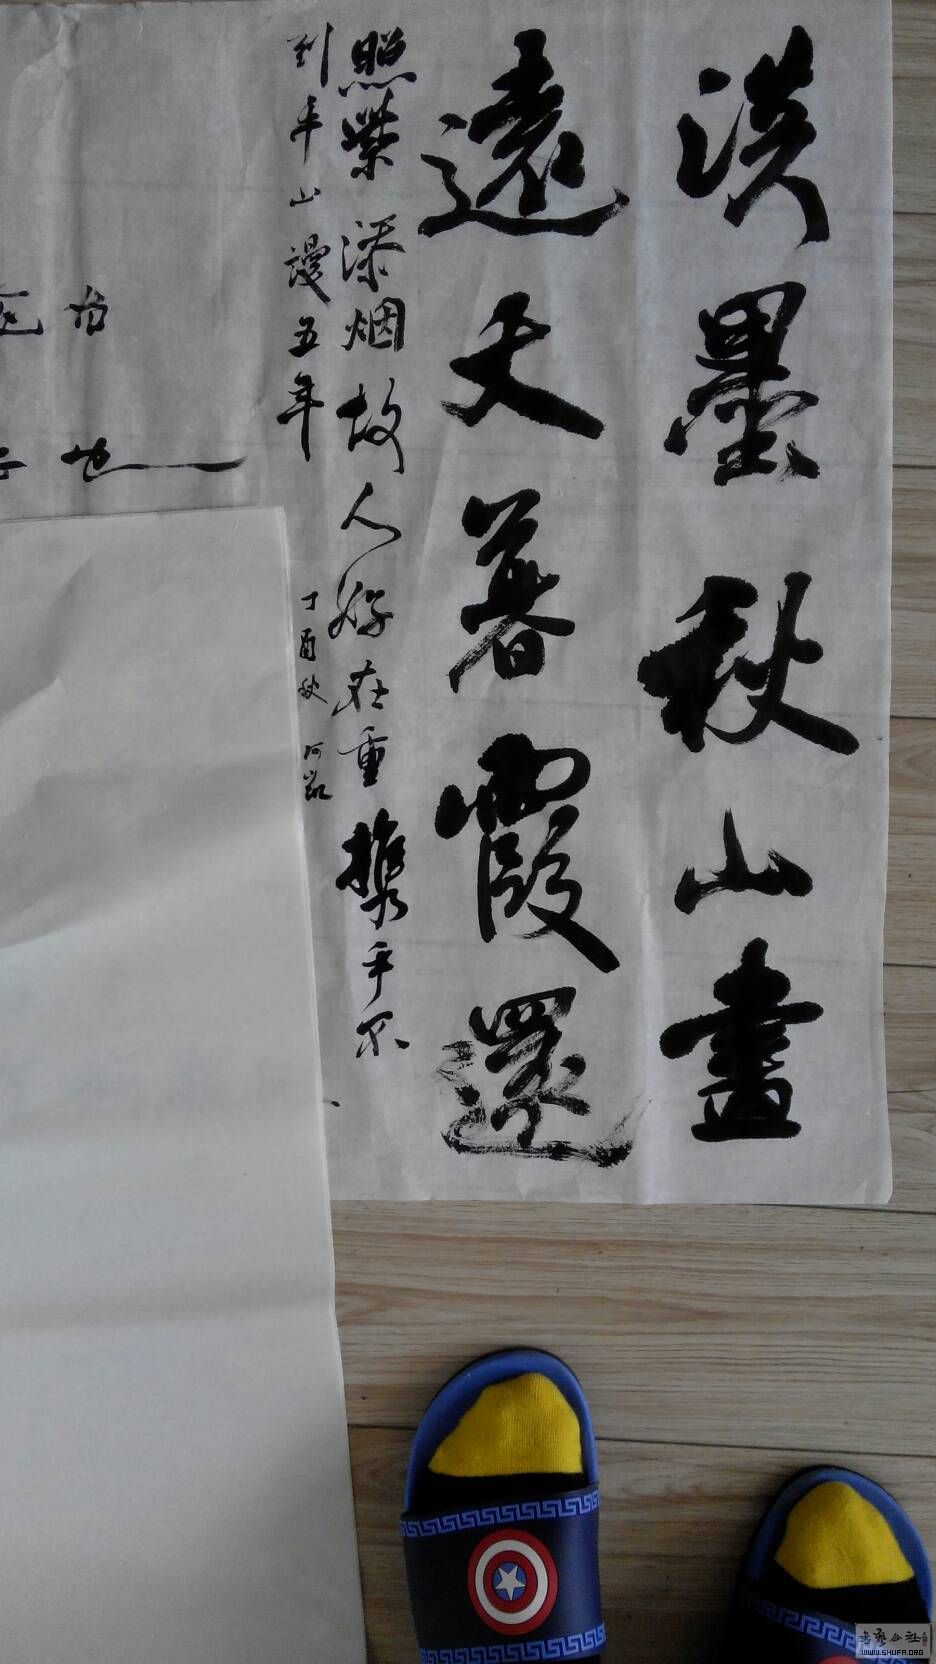 淡墨秋山畫
遠天暮霞還
照紫添烟故人好在重携手不
到平山謾五年
丁酉秋 阿凱
也
書藝公社
WWW.SHUFA.ORG